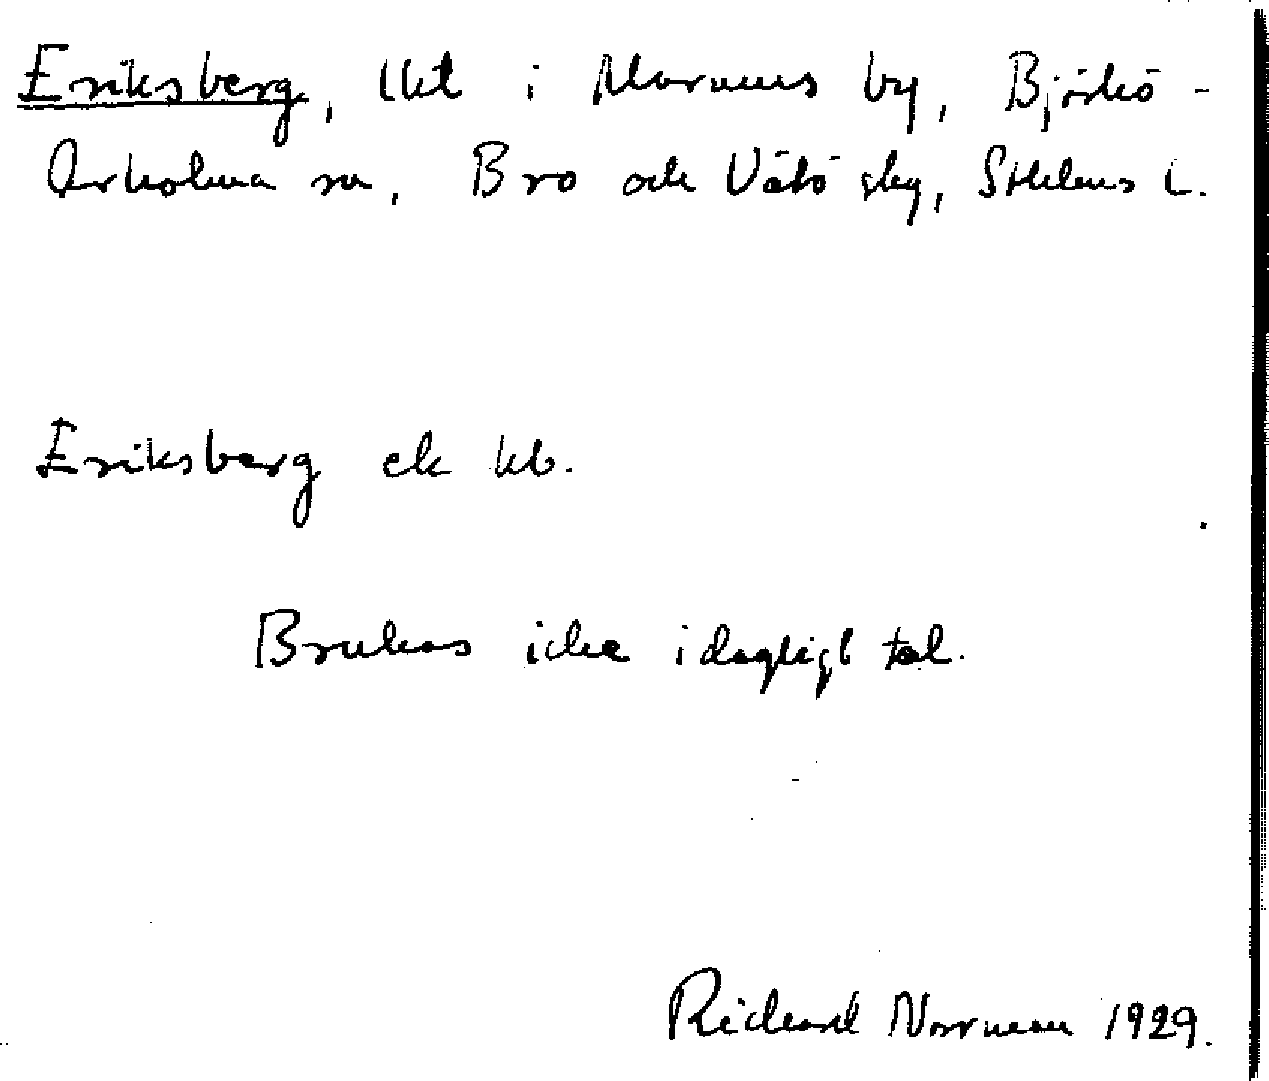 Eriksberg, lht i Marums by, Björkö-
Arholma sn, Bro och Vätö skg, Sthlms L.
Eriksberg ek kb.
Brukas icke i dagligt tal.
Richard Norrman 1929.